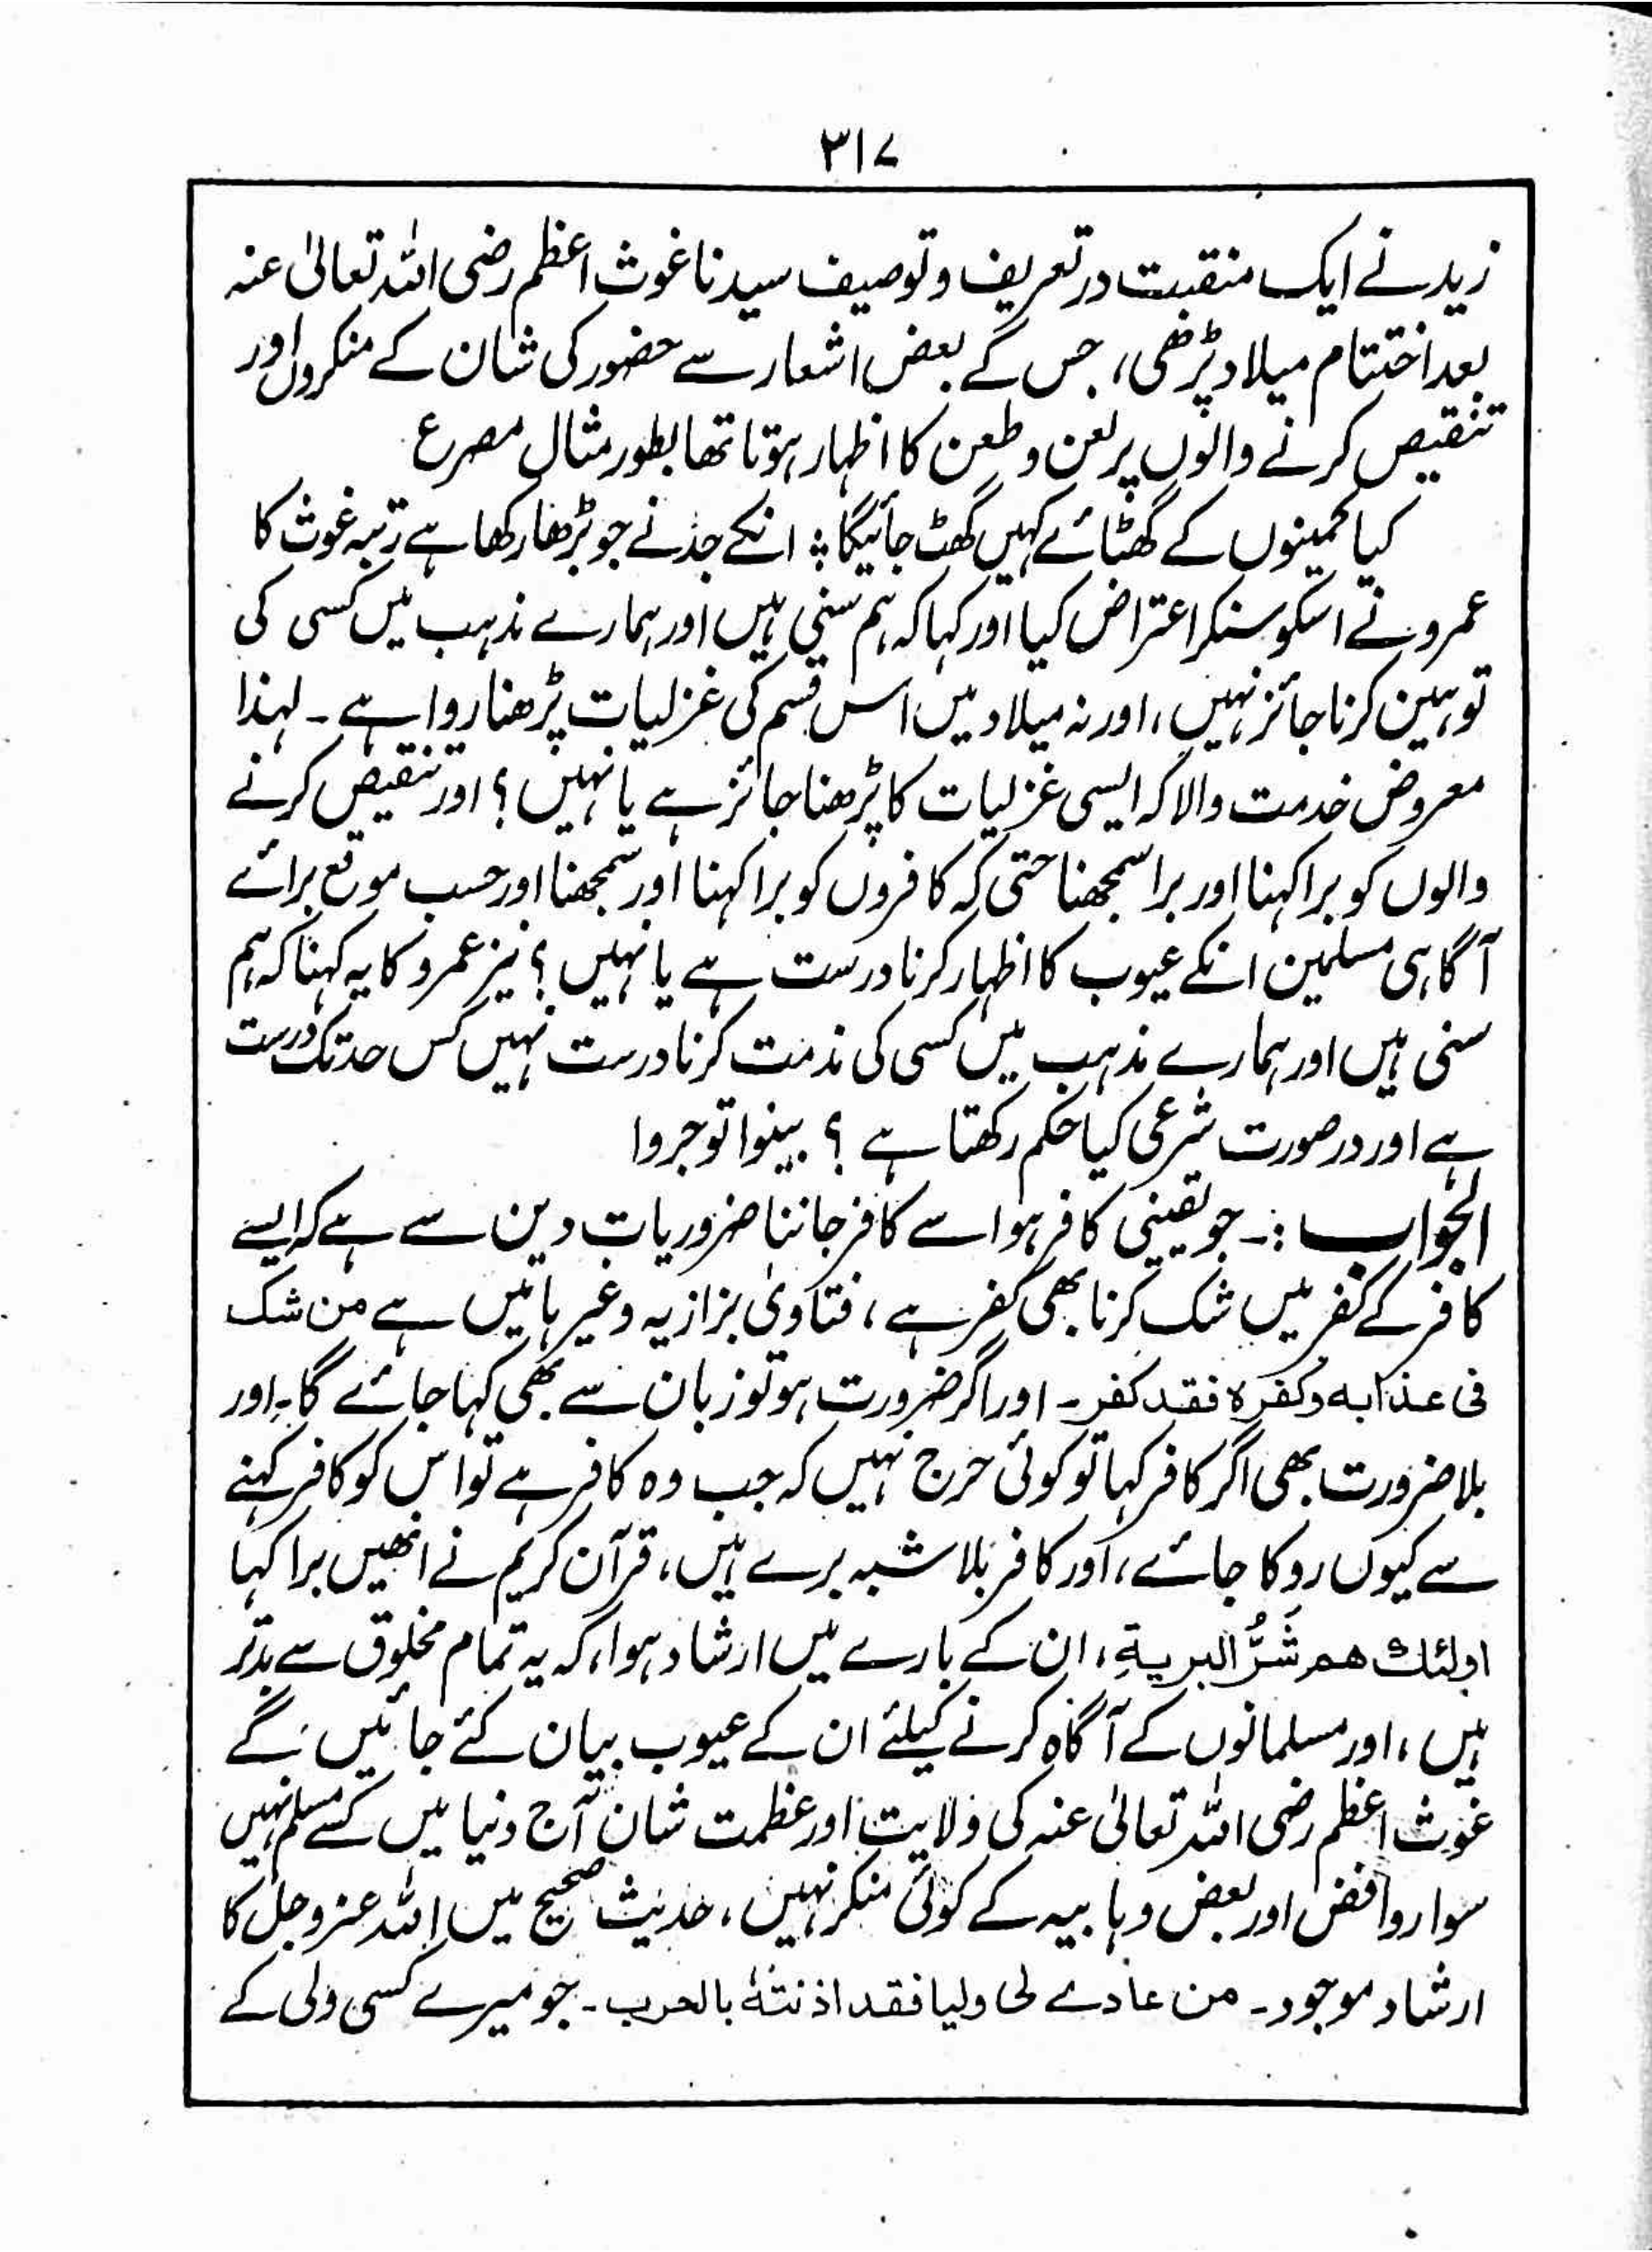 ۳۱۷
زید نے ایک منقبت در تعریف و توصیف سیدنا غوث اعظم رضی اللہ تعالیٰ عنہ
بعد اختتام میلاد پڑھی، جس کے بعض اشعار سے حضور کی شان کے منکروں اور
تنقیص کرنے والوں پر لعن و طعن کا اظہار ہوتا تھا بطور مثال مصرع
کیا کمینوں کے گھٹائے کہیں گھٹ جائیگا ؛ انکے جد نے جو بڑھا رکھا ہے رتبہ غوث کا
عمرو نے اسکو سنکر اعتراض کیا اور کہا کہ ہم سنی ہیں اور ہمارے مذہب میں کسی کی
توہین کرنا جائز نہیں، اور نہ میلاد میں اس قسم کی غزلیات پڑھنا روا ہے ۔ لہذا
معروض خدمت والا کہ ایسی غزلیات کا پڑھنا جائز ہے یا نہیں؟ اور تنقیص کرنے
والوں کو برا کہنا اور برا سمجھنا حتی کہ کافروں کو برا کہنا اور سمجھنا اور حسب موقع برائے
آگاہی مسلمین انکے عیوب کا اظہار کرنا درست ہے یا نہیں؟ نیز عمرو کا یہ کہنا کہ ہم
سنی ہیں اور ہمارے مذہب میں کسی کی مذمت کرنا درست نہیں کس حد تک درست
ہے اور در صورت شرعی کیا حکم رکھتا ہے ؟ بینوا توجروا
الجواب :۔ جو یقینی کافر ہو اسے کافر جاننا ضروریات دین سے ہے کہ ایسے
کافر کے کفر میں شک کرنا بھی کفر ہے، فتاویٰ بزازیہ وغیرہا میں ہے من شک
فی عذابه وکفره فقد کفر۔ اور اگر ضرورت ہو تو زبان سے بھی کہا جائے گا۔ اور
بلا ضرورت بھی اگر کافر کہا تو کوئی حرج نہیں کہ جب وہ کافر ہے تو اس کو کافر کہنے
سے کیوں روکا جائے، اور کافر بلا شبہ برے ہیں، قرآن کریم نے انھیں برا کہا
اولئك هم شَرُّ البريةِ، ان کے بارے میں ارشاد ہوا، کہ یہ تمام مخلوق سے بدتر
ہیں، اور مسلمانوں کے آگاہ کرنے کیلئے ان کے عیوب بیان کئے جائیں گے
غوث اعظم رضی اللہ تعالیٰ عنہ کی ولایت اور عظمت شان آج دنیا میں کسے مسلم نہیں
سوا روافض اور بعض وہابیہ کے کوئی منکر نہیں، حدیث صحیح میں اللہ عزوجل کا
ارشاد موجود۔ من عادے لی ولیا فقد اذنتهٗ بالحرب۔ جو میرے کسی ولی کے